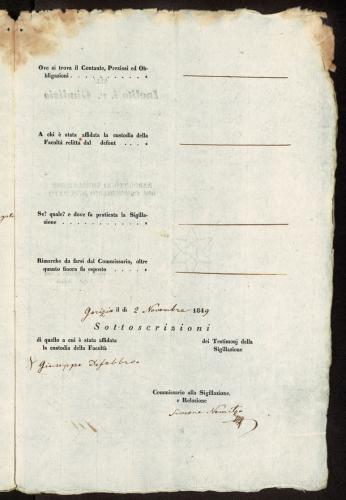 Ove si trova il Contante, Preziosi ed Ob-
bligazioni
A chi è stata affidata la custodia della
Facoltà relitta dal defont
Se? quale? e dove fu praticata la Sigilla-
zione
Rimarche da farsi dal Commissario, oltre
quanto finora fu esposto
Gorizia il dì 2 Novembre 1849
Sottoscrizioni
di quello a cui è stata affidata
la custodia della Facoltà
dei Testimonj della
Sigillazione
Giuseppe
Commissario alla Sigillazione
e Relazione
Simone